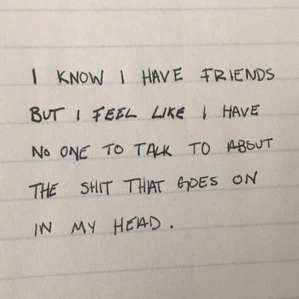 I KNOW I HAVE FRIENDS
BUT I FEEL LIKE I HAVE
NO ONE TO TALK TO ABOUT
THE SHIT THAT GOES ON
IN MY HEAD.